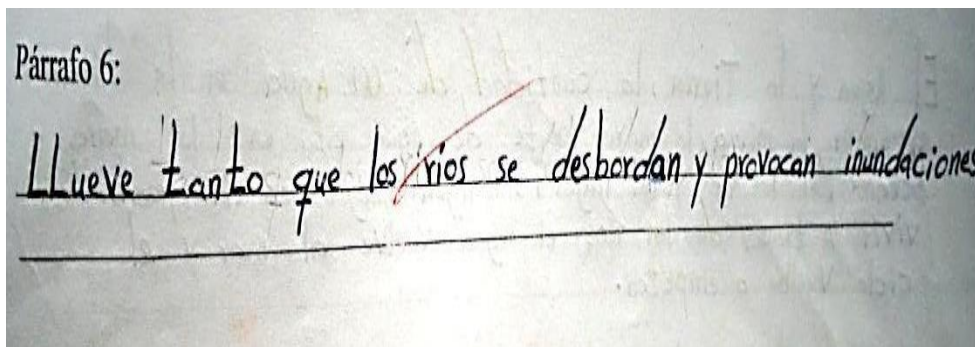 Párrafo 6:
LLueve tanto que los rios se desbordan y provocan inundaciones